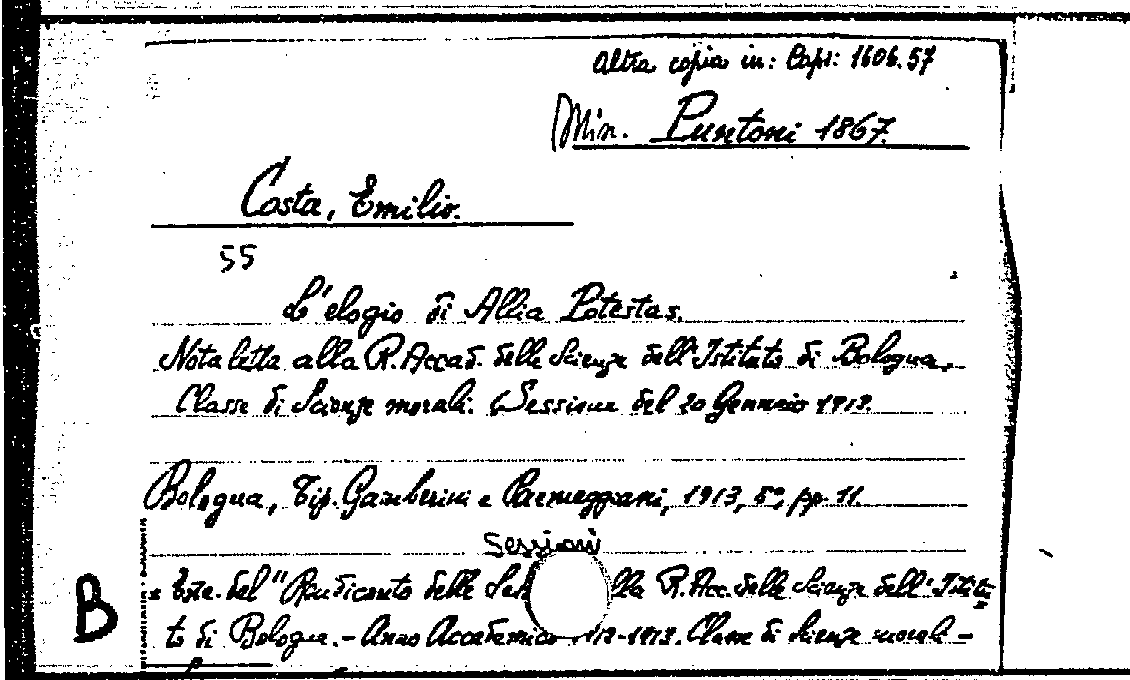 Altra copia in: Caps: 1606.57
Min. Puntoni 1867.
Costa, Emilio.
55
L'elogio di Allia Potestas.
Nota letta alla R. Accad. delle Scienze dell'Istituto di Bologna.
Classe di Scienze morali. Sessione del 20 Gennaio 1913.
Bologna, Tip. Gamberini e Parmeggiani, 1913, 8°, pp. 11.
Sessioni
Estr. del "Rendiconto delle lla R. Acc. delle Scienze dell'Istitu
B
to di Bologna. - Anno Accademico 12-1913. Classe di Scienze morali -